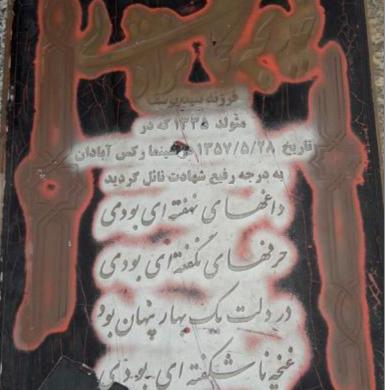 فرزند سیدیوسف
متولد ۱۳۳۵ که در
تاریخ ۱۳۵۷/۵/۲۸ در سینما رکس آبادان
به درجه رفیع شهادت نائل گردید
داغهای نهفته ای بودی
حرفهای نگفته ای بودی
در دلت یک بهار پنهان بود
غنچه ناشکفته ای بودی